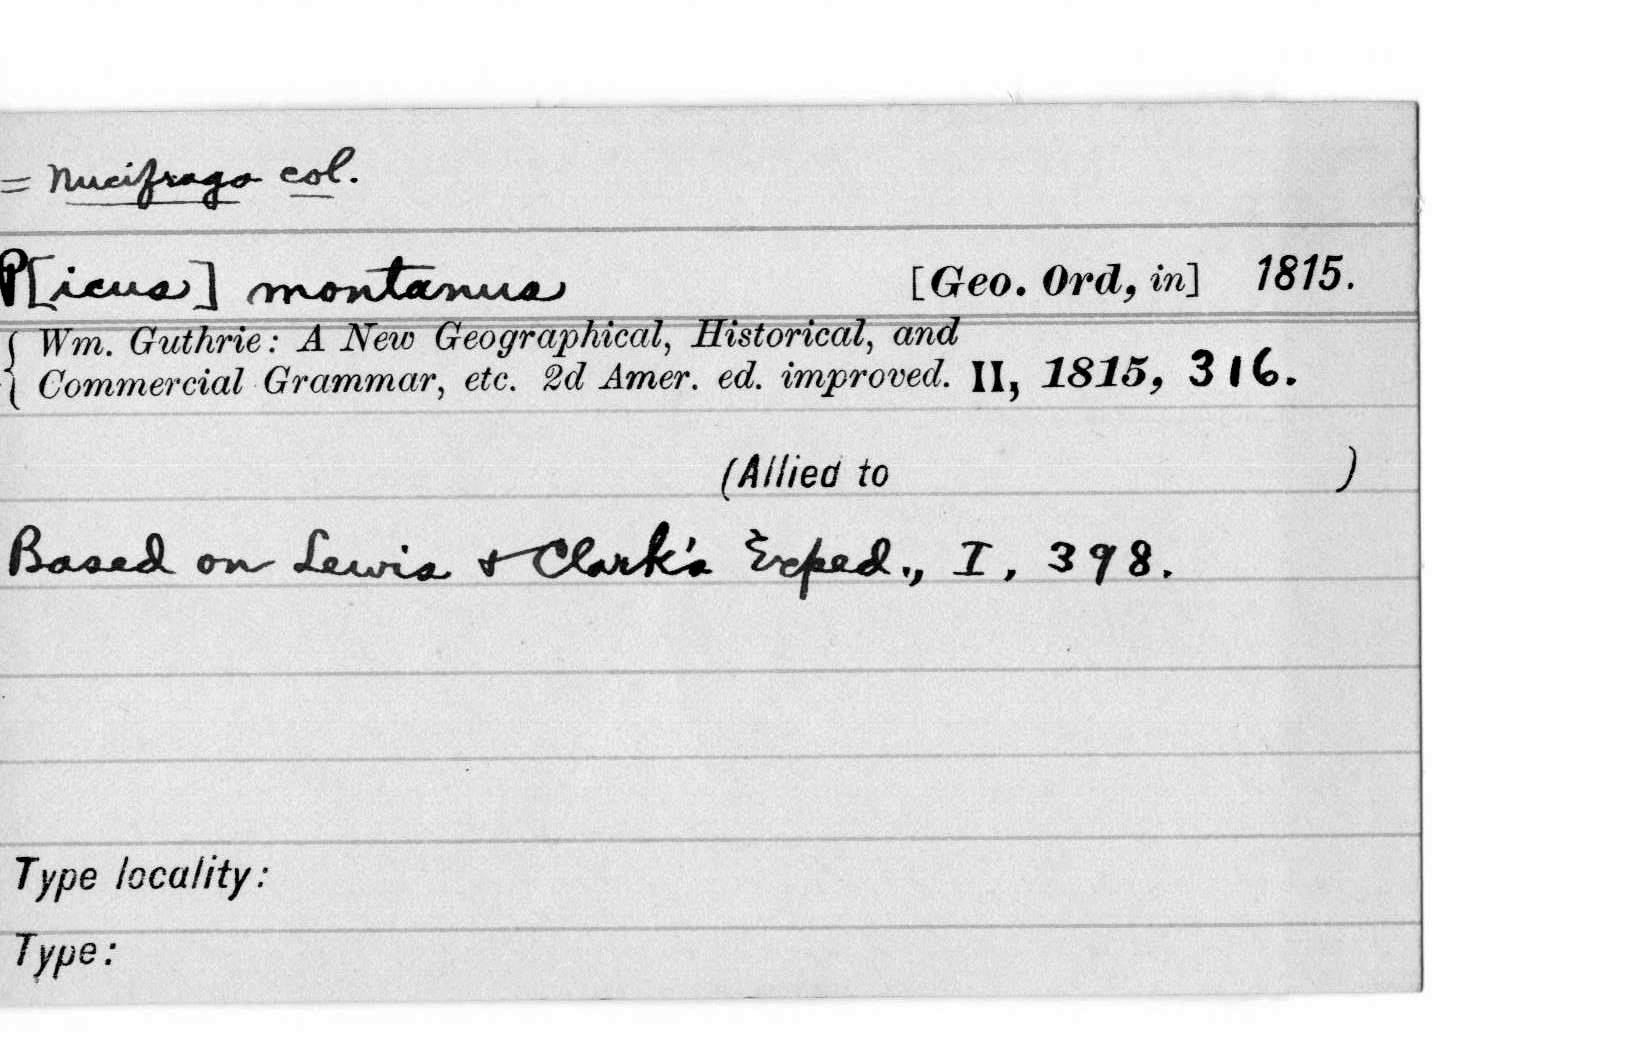 = Nucifraga col.
P[icus] montanus [Geo. Ord, in] 1815.
Wm. Guthrie: A New Geographical, Historical, and
Commercial Grammar, etc. 2d Amer. ed. improved. II, 1815, 316.
(Allied to )
Based on Lewis & Clark's Exped., I, 398.
Type locality:
Type: